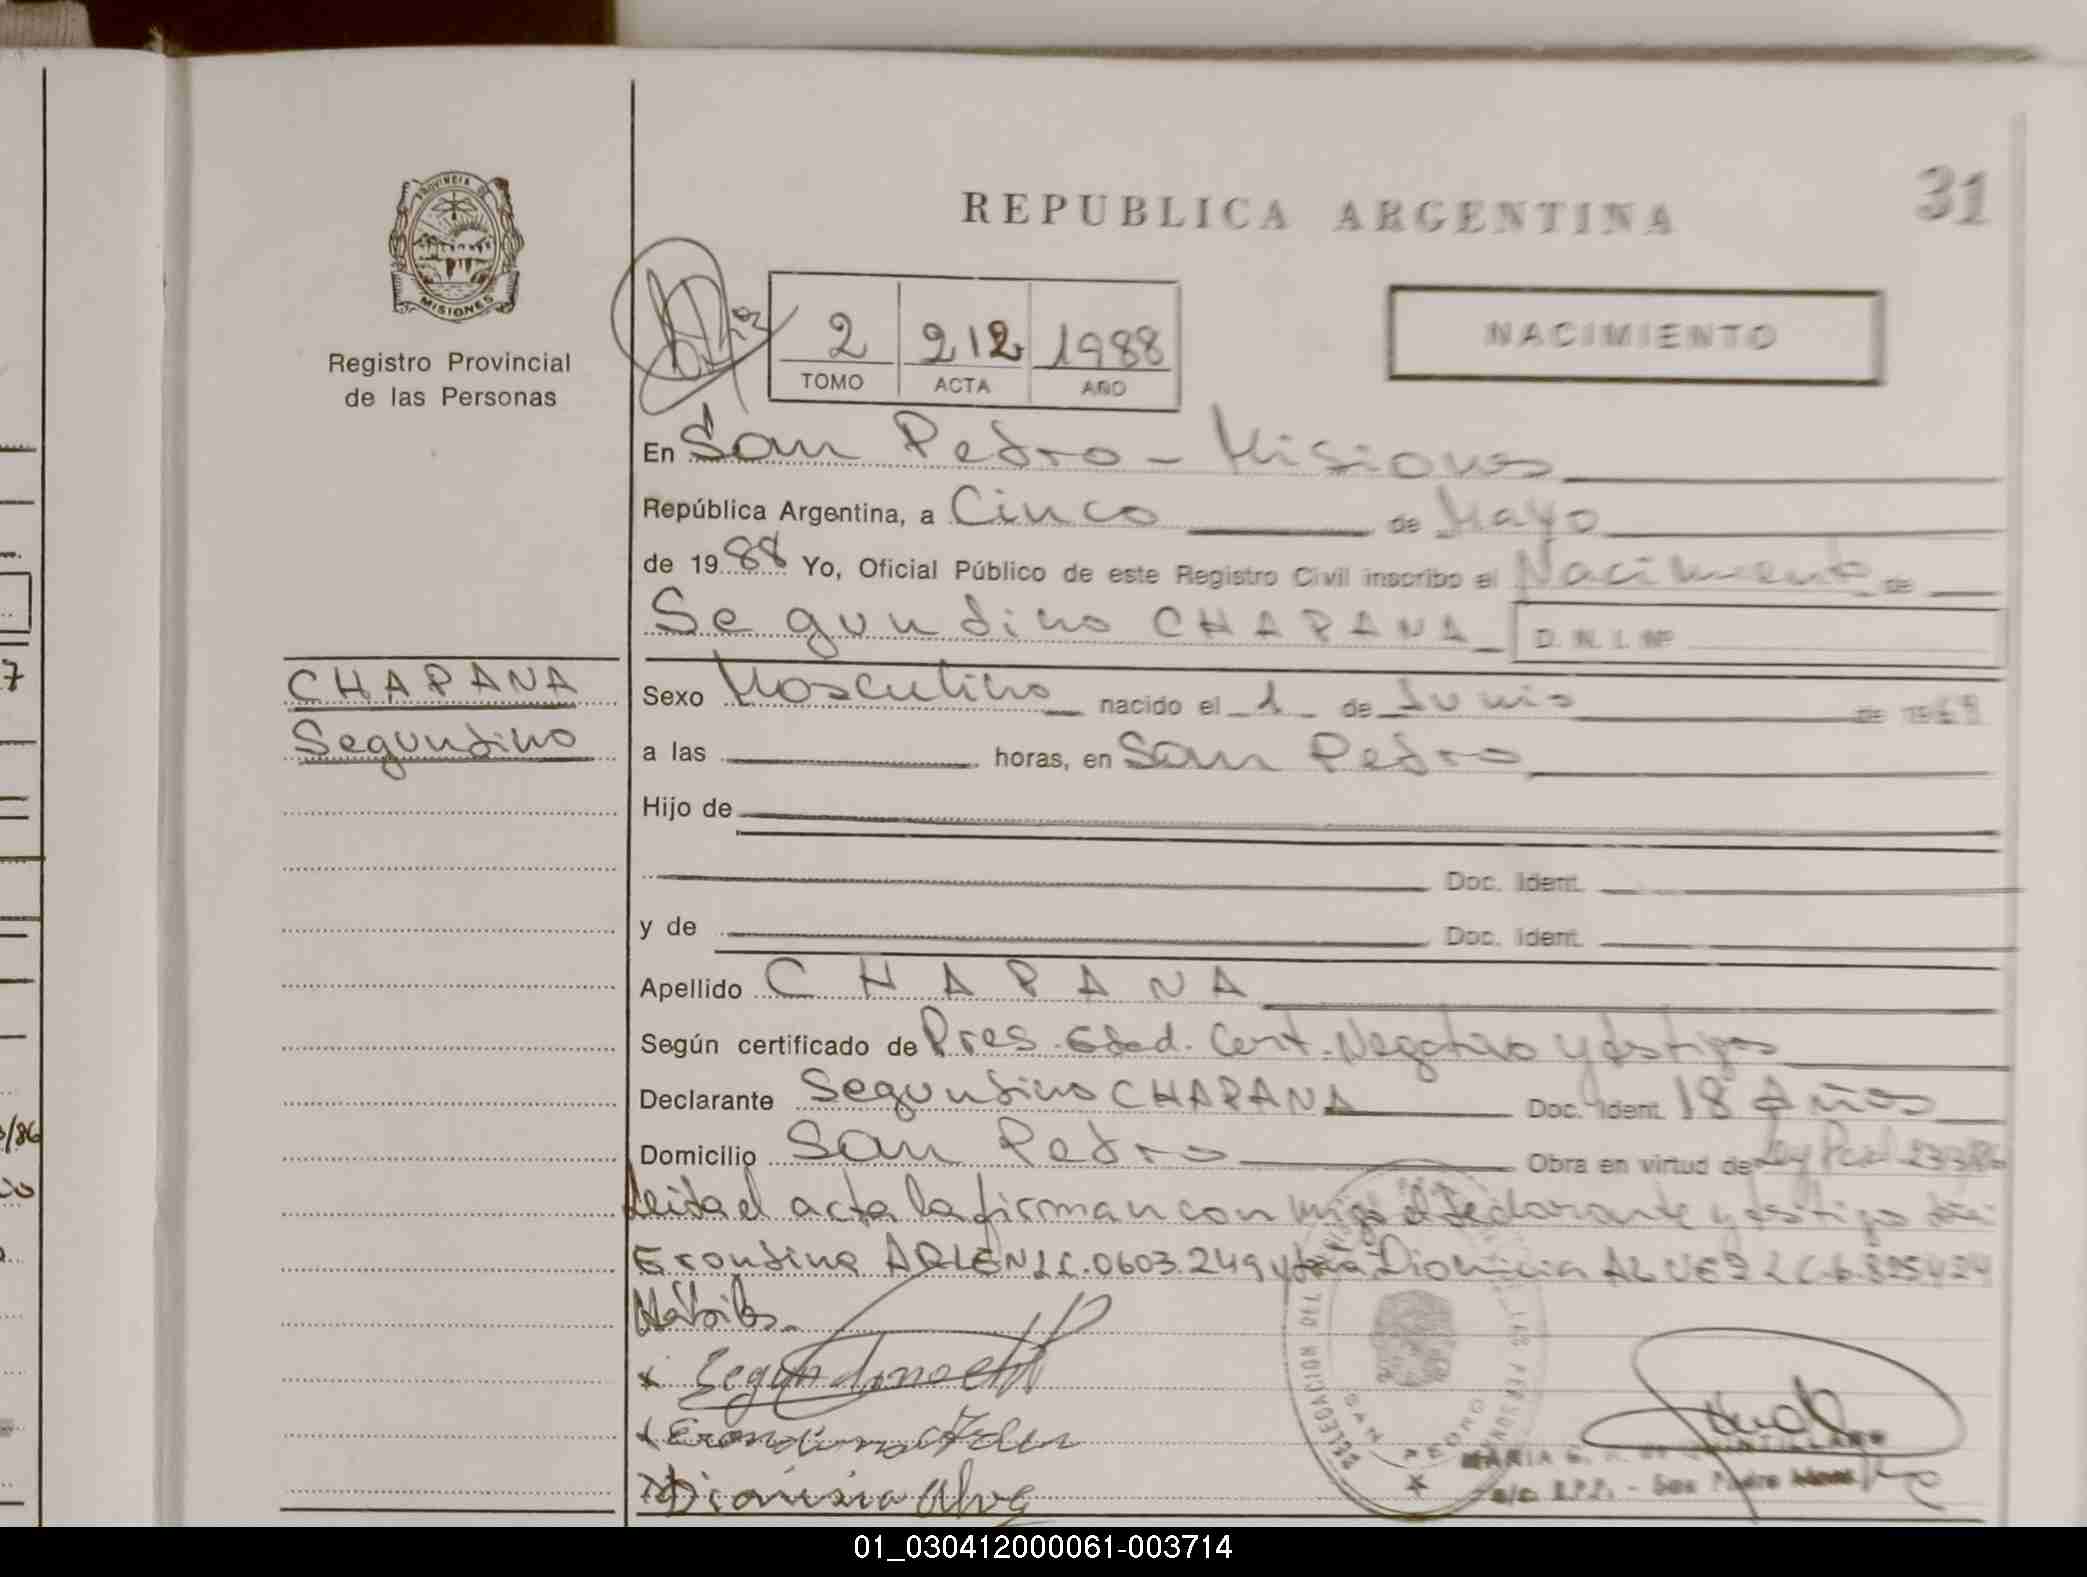 31
REPUBLICA ARGENTINA
PROVINCIA DE
MISIONES
Registro Provincial
de las Personas
2 212 1988
TOMO ACTA AÑO
NACIMIENTO
En San Pedro - Misiones
República Argentina, a Cinco de Mayo
de 1988 Yo, Oficial Público de este Registro Civil inscribo el Nacimiento de
Segundino CHAPANA D. N. I. Nº
CHAPANA
Segundino
Sexo Masculino nacido el 1 de Junio de 1969
a las horas, en San Pedro
Hijo de
Doc. Ident.
y de Doc. Ident.
Apellido CHAPANA
Según certificado de Pres. Edad. Cert. Negativo y testigos
Declarante Segundino CHAPANA Doc. Ident. 18 Años
Domicilio San Pedro Obra en virtud de Ley Pcial 2338
Leida el acta la firman con migo el declarante y testigo
Erondina ARLEN LC. 0603.249 y Dionicia ALVEZ LC. 6.825424
Hábiles
x Segundino
x Erondina Arlen
x Dionisia Alve
DELEGACION
SAN PEDRO
MARIA G.
San Pedro
7
/86
01_030412000061-003714